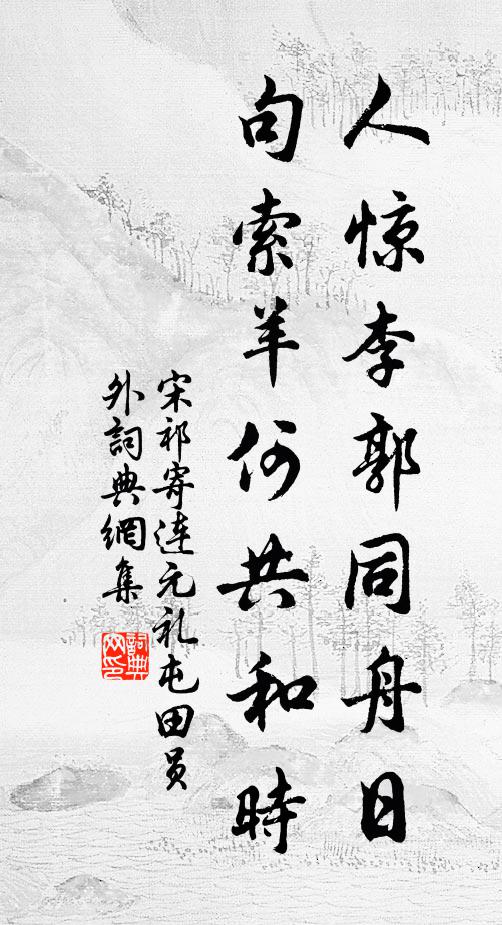 人惊李郭同舟日
句索羊何共和時
宋祁寄连元礼屯田员
外詞典網集
詞典网印